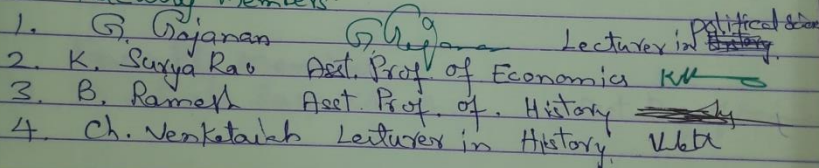 Members
1. G. Gajanan Lecturer in Political Scien
2. K. Surya Rao Asst. Prof. of Economics
3. B. Ramesh Asst. Prof. of. History
4. Ch. Venketaiah Lecturer in History